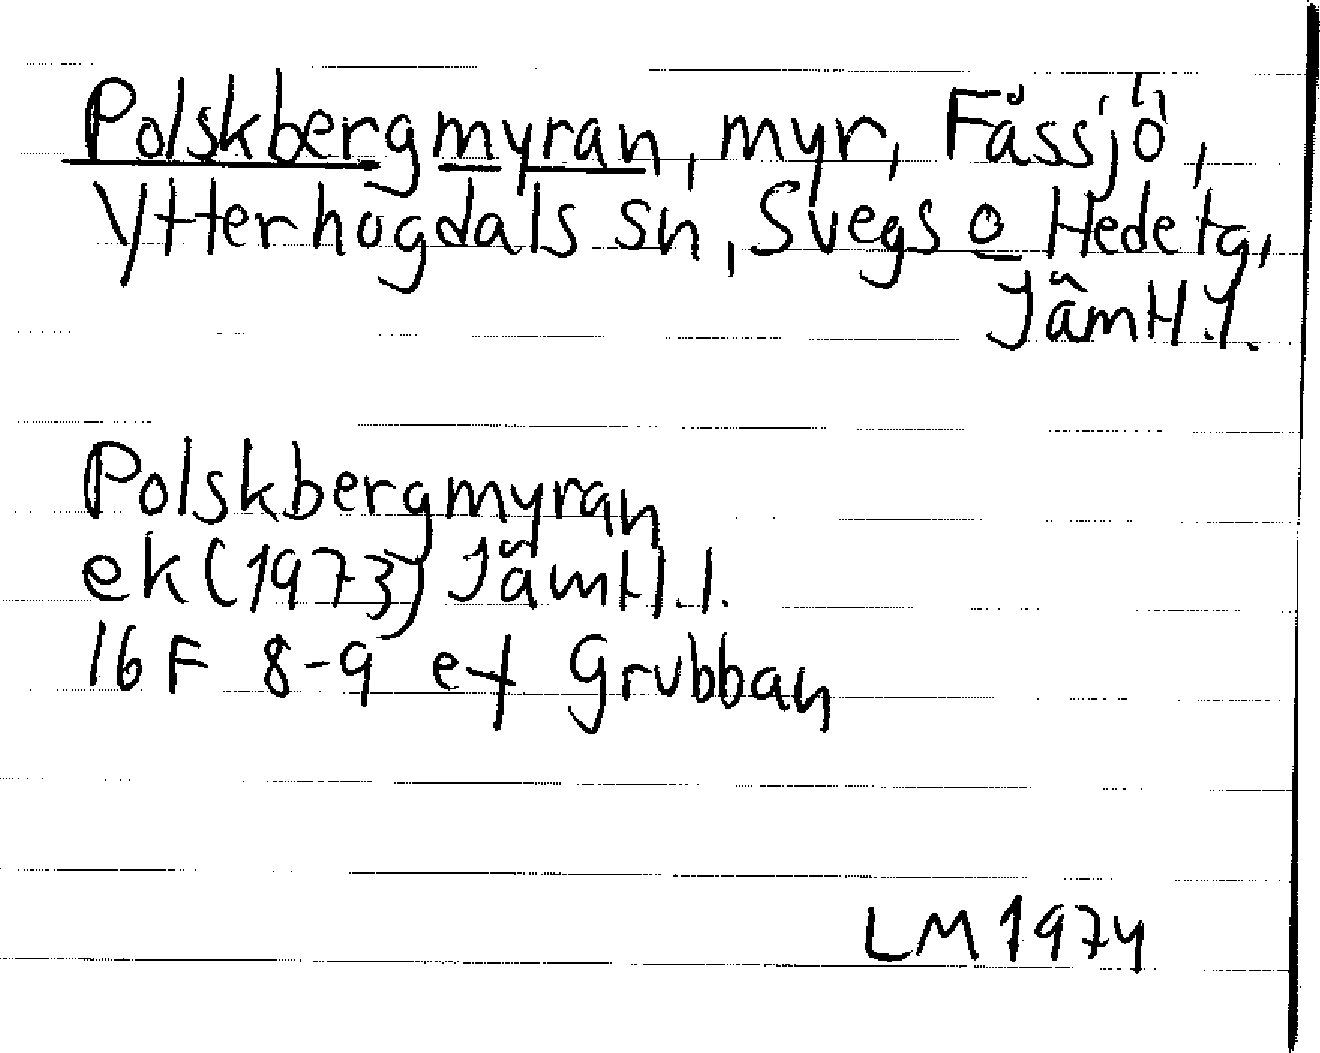 Polskbergmyran, myr, Fåssjö,
Ytterhogdals sn, Svegs o Hede tg,
Jämtl. l.
Polskbergmyran
ek (1973) Jämtl. l.
16 F 8-9 ef Grubban
LM 1974